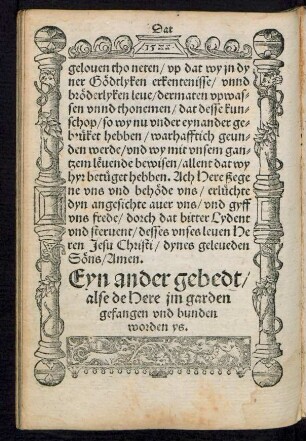 Dat
geloven tho neten / vp dat wy jn dy
ner Gödtlyken erkentenisse / vnnd
bröderlyken leue / dermaten vpwas-
sen vnnd thonemen / dat desse kun-
schop / so wy nu vnder eynander ge-
brüket hebben / warhafftich geun-
den werde / vnd wy mit vnsem gan-
tzem leuende bewisen / allent dat wy
hyr betüget hebben. Ach Here segge
ne vns vnd behöde vns / erlüchte
dyn angesichte auer vns / vnd gyff
vns frede / dorch dat bitter Lydent
vnd steruent / desses vnses leuen He
ren Jesu Christi / dynes geleueden
Söns / Amen.
Eyn ander gebedt /
alse de Here jm garden
gefangen vnd bunden
worden ys.